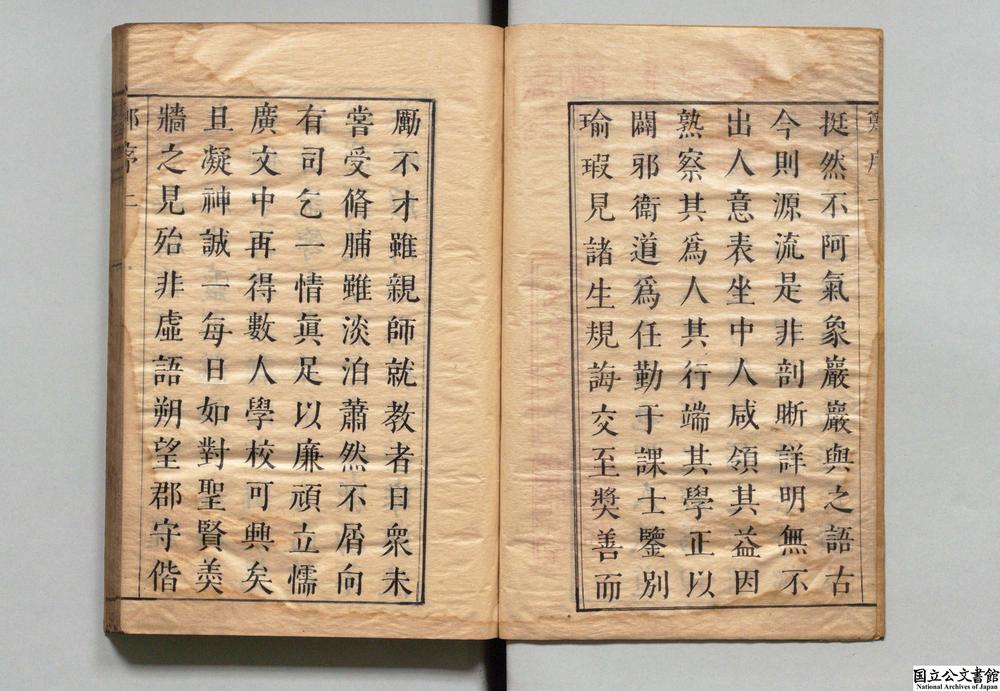 挺然不阿氣象巖巖與之語古
今則源流是非剖晣詳明無不
出人意表坐中人咸領其益因
熟察其爲人其行端其學正以
闢邪衛道爲任勤于課士鑒別
瑜瑕見諸生規誨交至奬善而
勵不才雖親師就教者日衆未
嘗受脩脯雖淡泊蕭然不屑向
有司乞一情眞足以廉頑立懦
廣文中再得數人學校可興矣
且凝神誠一每日如對聖賢羮
牆之見殆非虛語朔望郡守偕
国立公文書館
National Archives of Japan